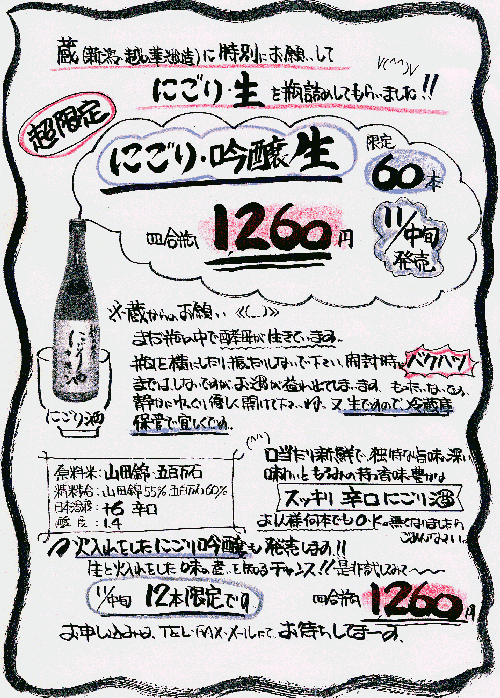 蔵(新潟・越の華酒造)に特別にお願いして
にごり・生を瓶詰めしてもらいました!!
超限定
にごり・吟醸生
限定
60本
四合瓶 1,260円
11/中旬
発売
※蔵からのお願い
まだ瓶の中で酵母が生きています。
瓶を横にしたり振ったりしないで下さい。開封時に
バクハツ
まではしないですが、お酒が溢れ出てしまいます。もったいないので
静かにゆっくり優しく開けて下さいね。又生ですので、冷蔵庫
保管で宜しくです。
にごり酒
にごり酒
原料米:山田錦・五百万石
精米歩合:山田錦55% 五百万石60%
日本酒度:+6 辛口
酸度:1.4
口当たり新鮮で、独特な旨味の深い
味わいともろみの持つ香味豊かな
スッキリ辛口にごり酒
お一人様何本でもO・K。無くなりましたら
ごめんなさい。
火入れをしたにごり吟醸も発売します!!
生と火入れをした味の差を知るチャンス!!是非試してみて〜
11/中旬 12本限定です。
四合瓶 1260円
お申し込みは、TEL・FAX・メールにて、お待ちしてまーす。